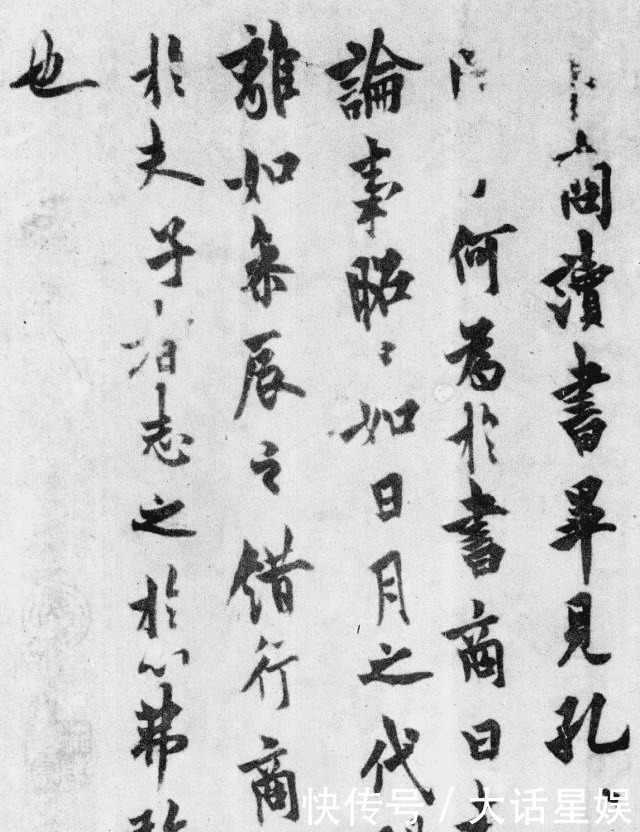 商讀書畢見孔
何為於書商曰
論事昭〻如日月之代
離如參辰之錯行商
於夫子 志之於心弗敢
也
快传号 / 大话星娱